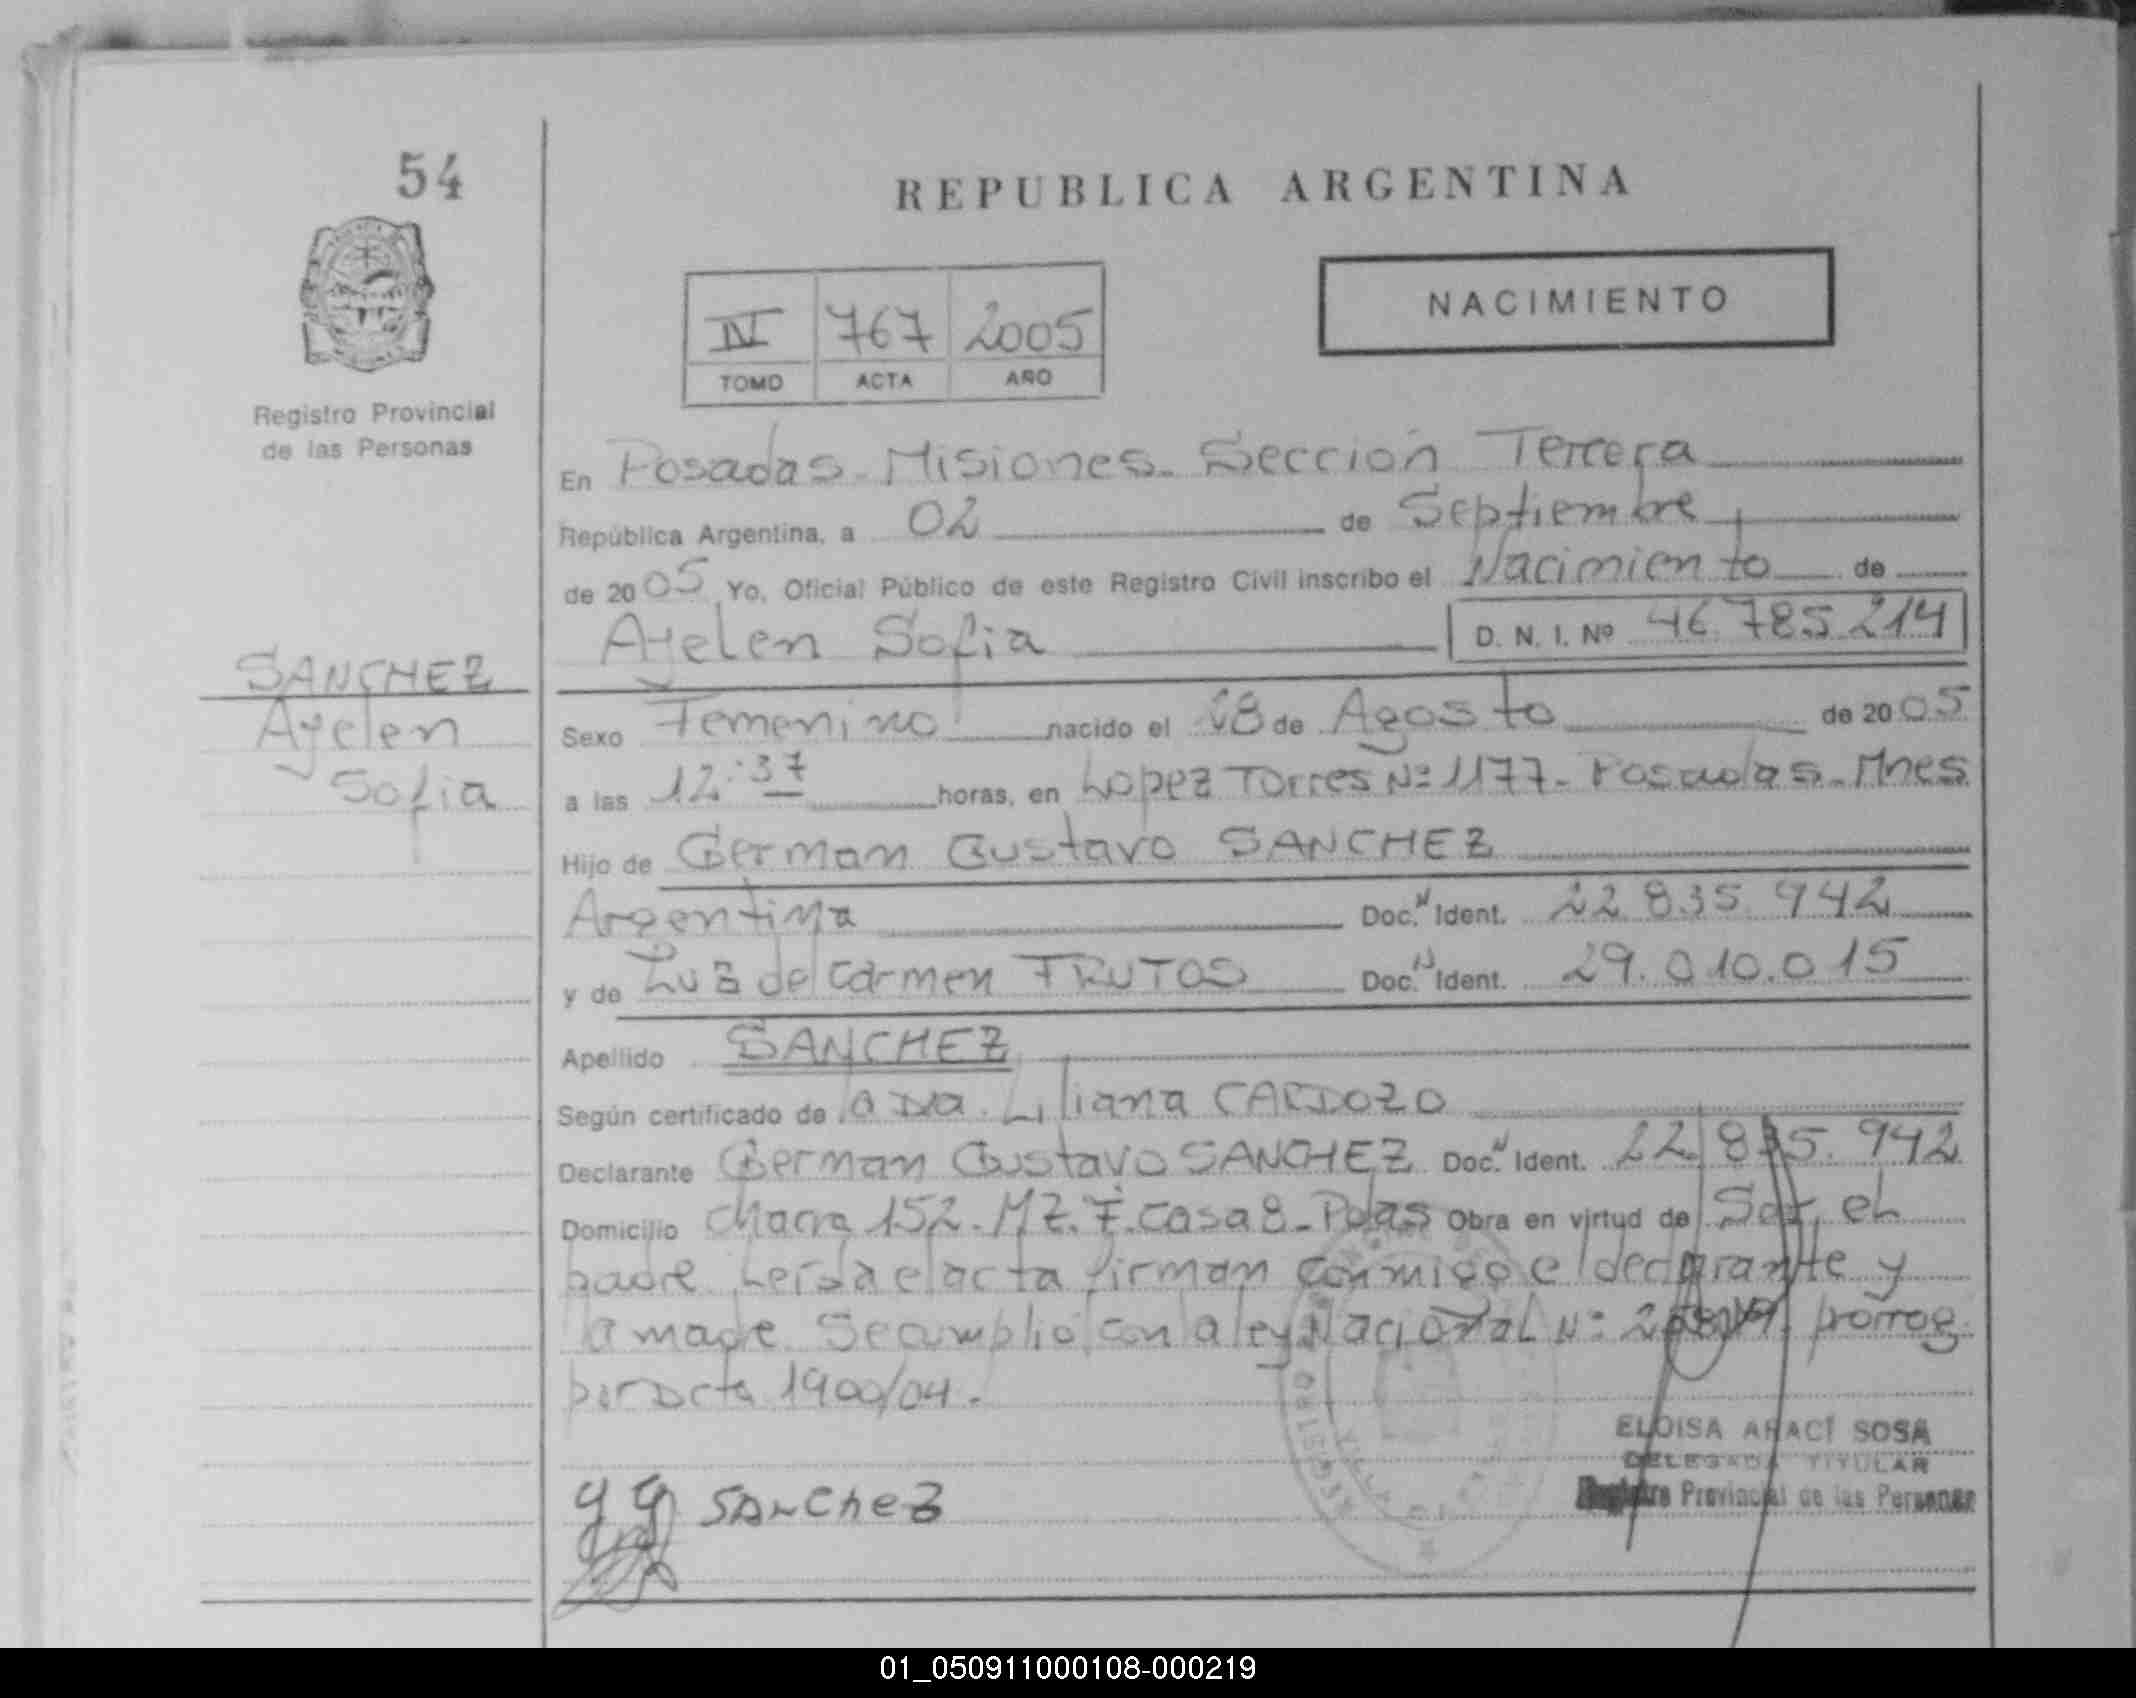 54
REPUBLICA ARGENTINA
NACIMIENTO
IV 767 2005
TOMO ACTA AÑO
Registro Provincial
de las Personas
En Posadas - Misiones - Sección Tercera
República Argentina, a 02 de Septiembre
de 2005 Yo, Oficial Público de este Registro Civil inscribo el Nacimiento de
Ayelen Sofia D. N. I. Nº 46.785.214
SANCHEZ
Ayelen
Sofia
Sexo Femenino nacido el de Agosto de 2005
a las 12:37 horas, en Lopez Torres Nº 1177 - Posadas - Mnes
Hijo de German Gustavo SANCHEZ
Argentina Doc. N Ident. 22.835.942
y de Luz del Carmen FRUTOS Doc. N Ident. 29.010.015
Apellido SANCHEZ
Según certificado de la Dra. Liliana CARDOZO
Declarante German Gustavo SANCHEZ Doc. N Ident. 22.835.942
Domicilio Chacra 152 - MZ. F. Casa 8 - Pdas Obra en virtud de Ser el
padre Leída el acta firman conmigo el declarante y
la madre. Se cumplio con la ley Nacional Nº prorrog.
por Dcto 1900/04.
ELOISA ARACI SOSA
DELEGADA TITULAR
Registro Provincial de las Personas
SANCHEZ
01_050911000108-000219